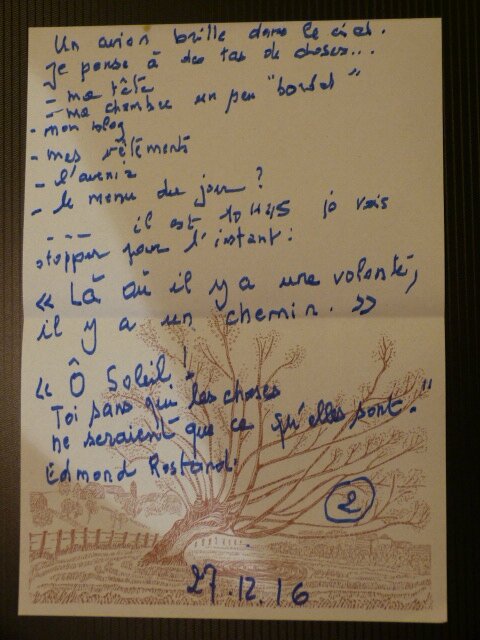 Un avion brille dans le ciel.
Je pense à des tas de choses...
- ma tête
- ma chambre un peu "bordel"
- mon blog
- mes vêtements
- l'avenir
- le menu du jour ?
--- il est 10H45 je vais
stopper pour l'instant :
« Là où il y a une volonté,
il y a un chemin. »
« Ô Soleil !
Toi sans qui les choses
ne seraient que ce qu'elles sont."
Edmond Rostand.
2
27.12.16